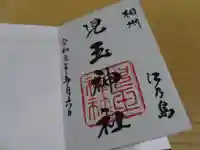 相州
江乃島
児玉神社
令和三年五月六日